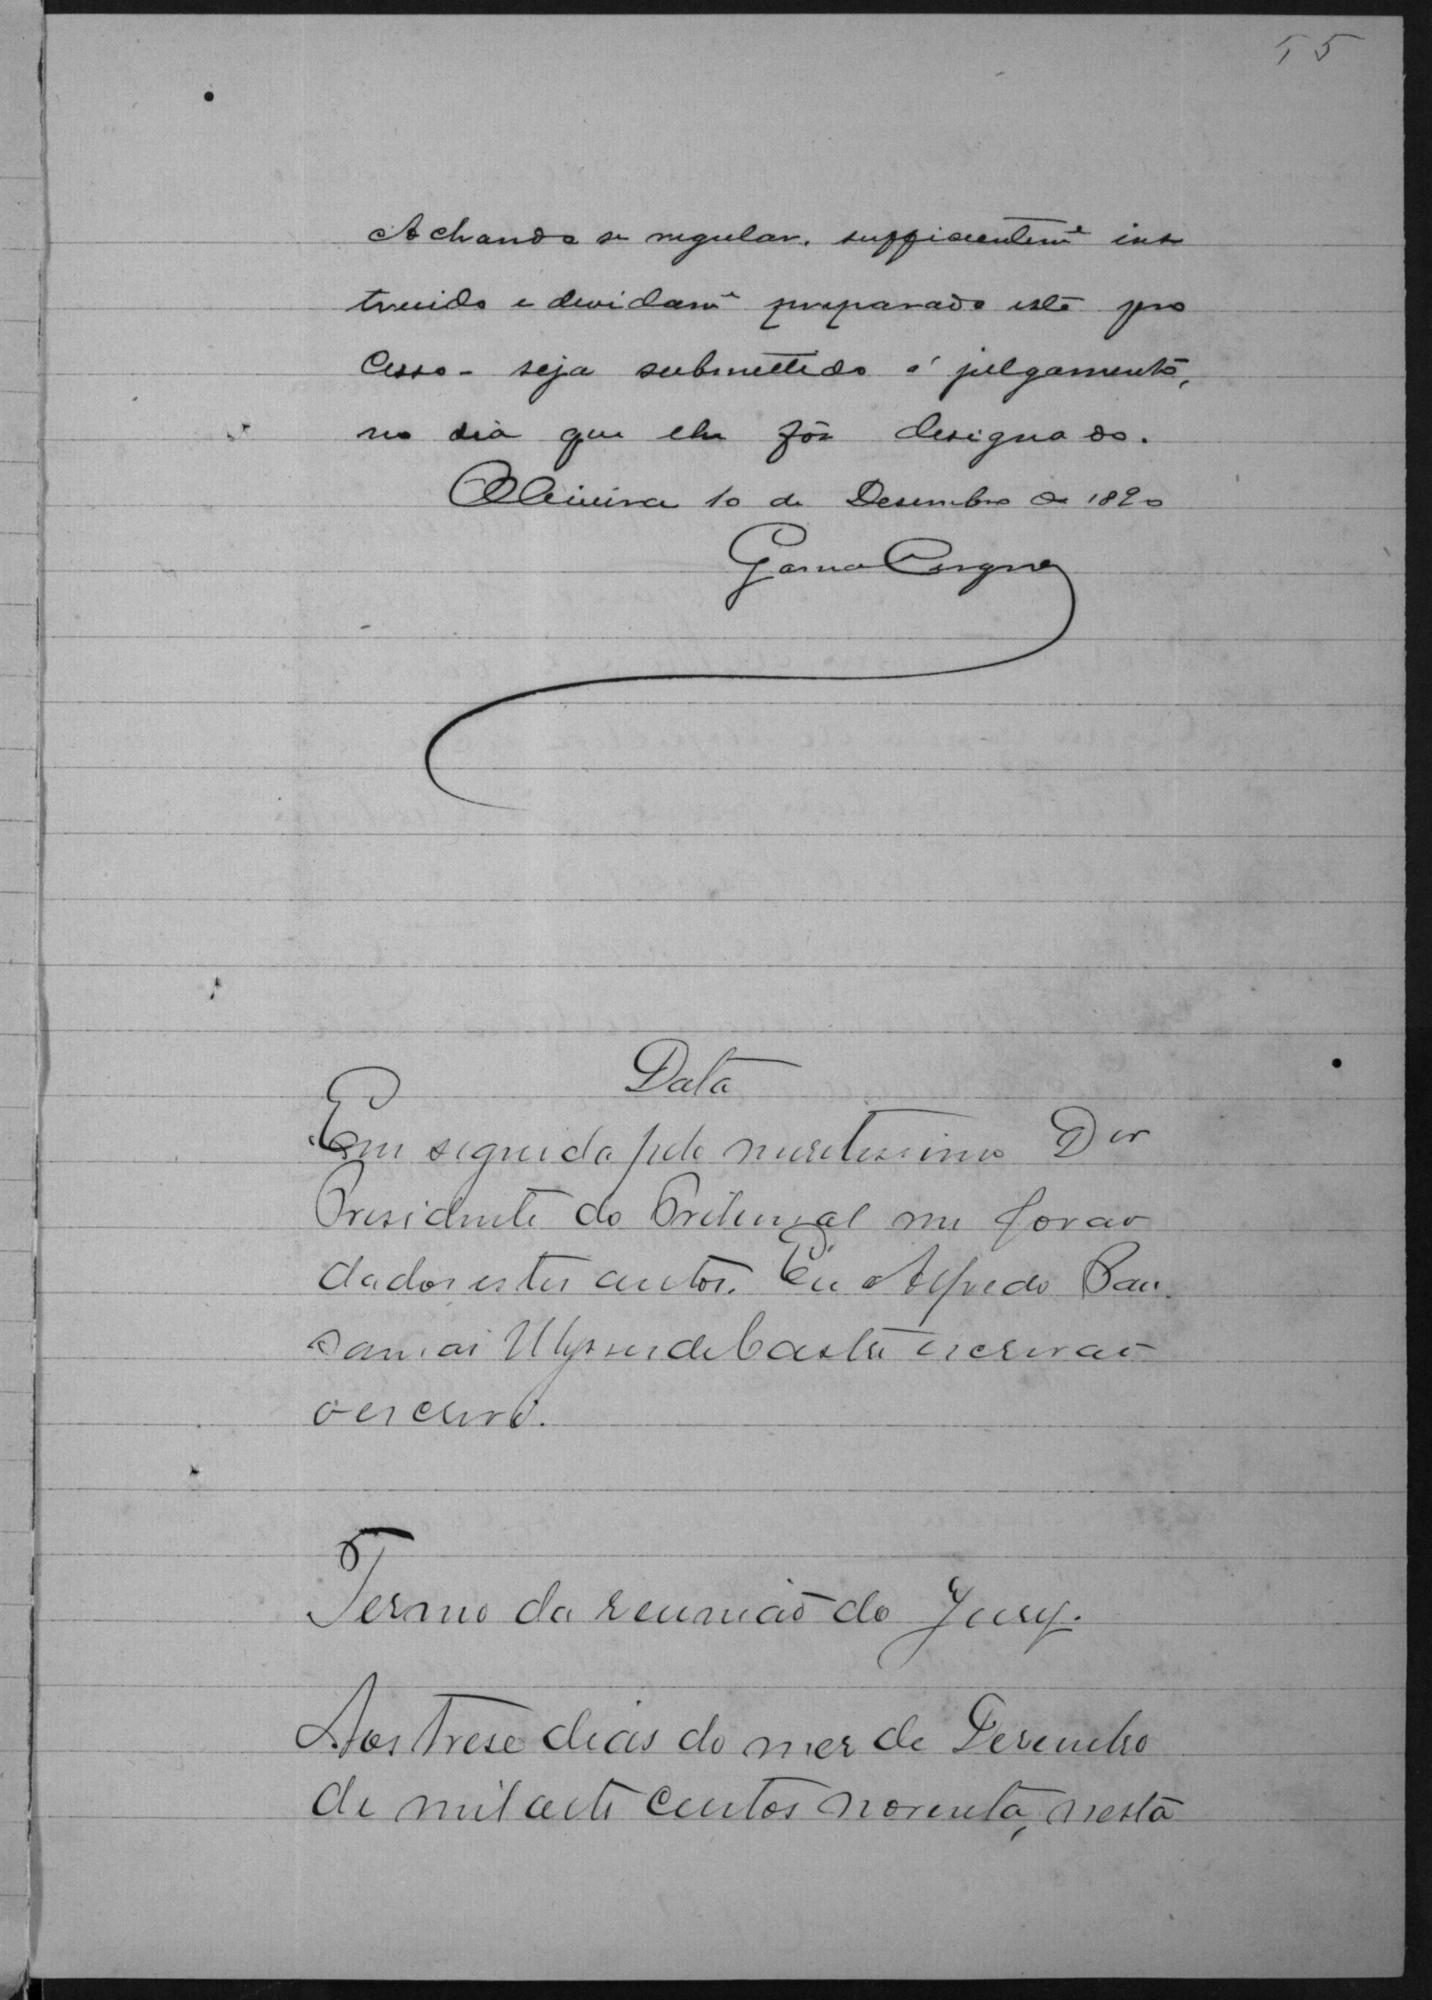 55
Achando se regular, sufficientemᵉ ins
truido e devidamᵉ preparado este pro
cesso - seja submettido á julgamento,
no dia que elle fôr designado.
Oliveira 10 de Desembro de 1890
Gama
Data
Em seguida pelo meretissimo Dor
Presidente do Tribunal me forão
dados estes autos. Eu Alfredo Pau
sanias Ulysses de Castro escrivão
o escrevi.
Termo da reunião do Jury.
Aos trese dias do mez de Dezembro
de mil oito centos noventa, nesta